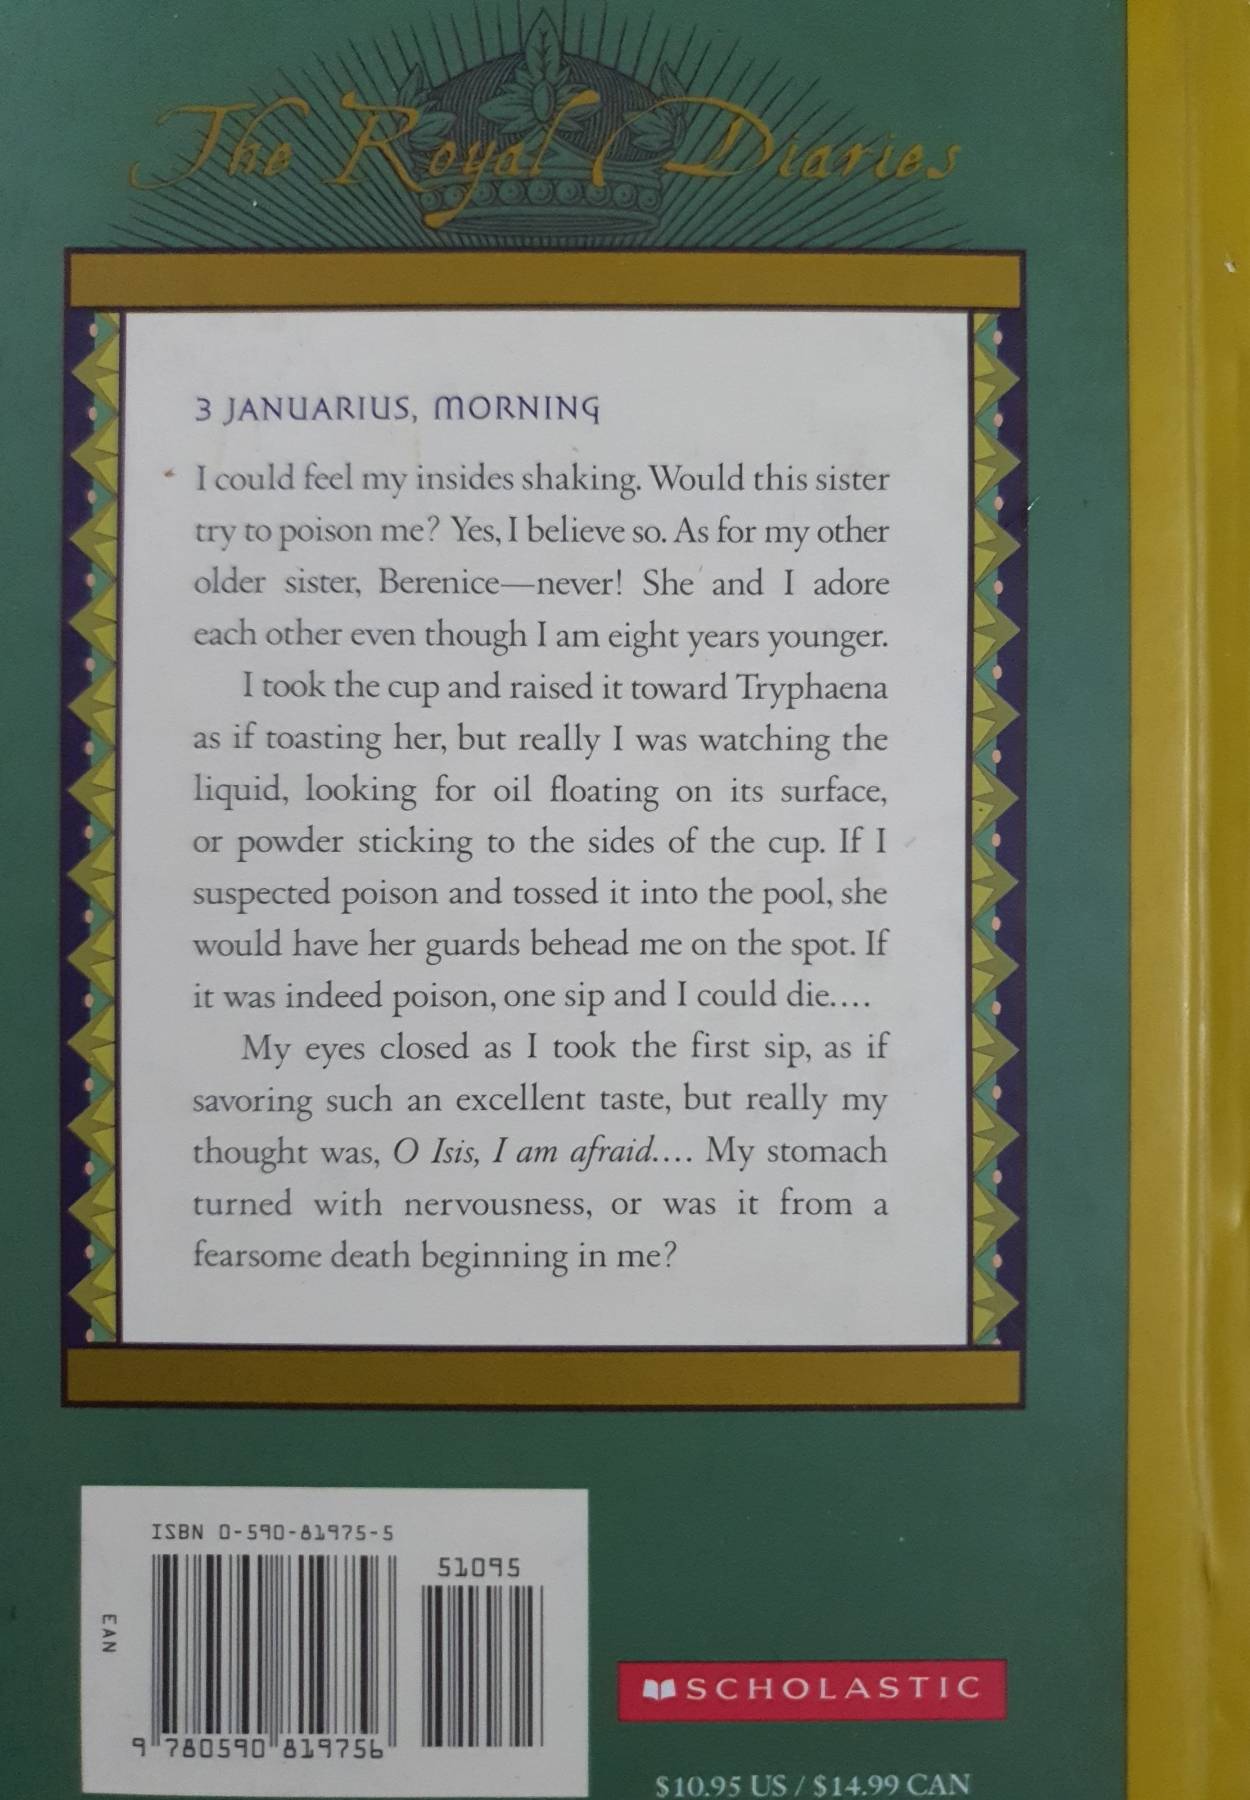 The Royal Diaries
3 JANUARIUS, MORNING
I could feel my insides shaking. Would this sister
try to poison me? Yes, I believe so. As for my other
older sister, Berenice—never! She and I adore
each other even though I am eight years younger.
I took the cup and raised it toward Tryphaena
as if toasting her, but really I was watching the
liquid, looking for oil floating on its surface,
or powder sticking to the sides of the cup. If I
suspected poison and tossed it into the pool, she
would have her guards behead me on the spot. If
it was indeed poison, one sip and I could die....
My eyes closed as I took the first sip, as if
savoring such an excellent taste, but really my
thought was, O Isis, I am afraid.... My stomach
turned with nervousness, or was it from a
fearsome death beginning in me?
ISBN 0-590-81975-5
51095
EAN
9 780590 819756
SCHOLASTIC
$10.95 US / $14.99 CAN